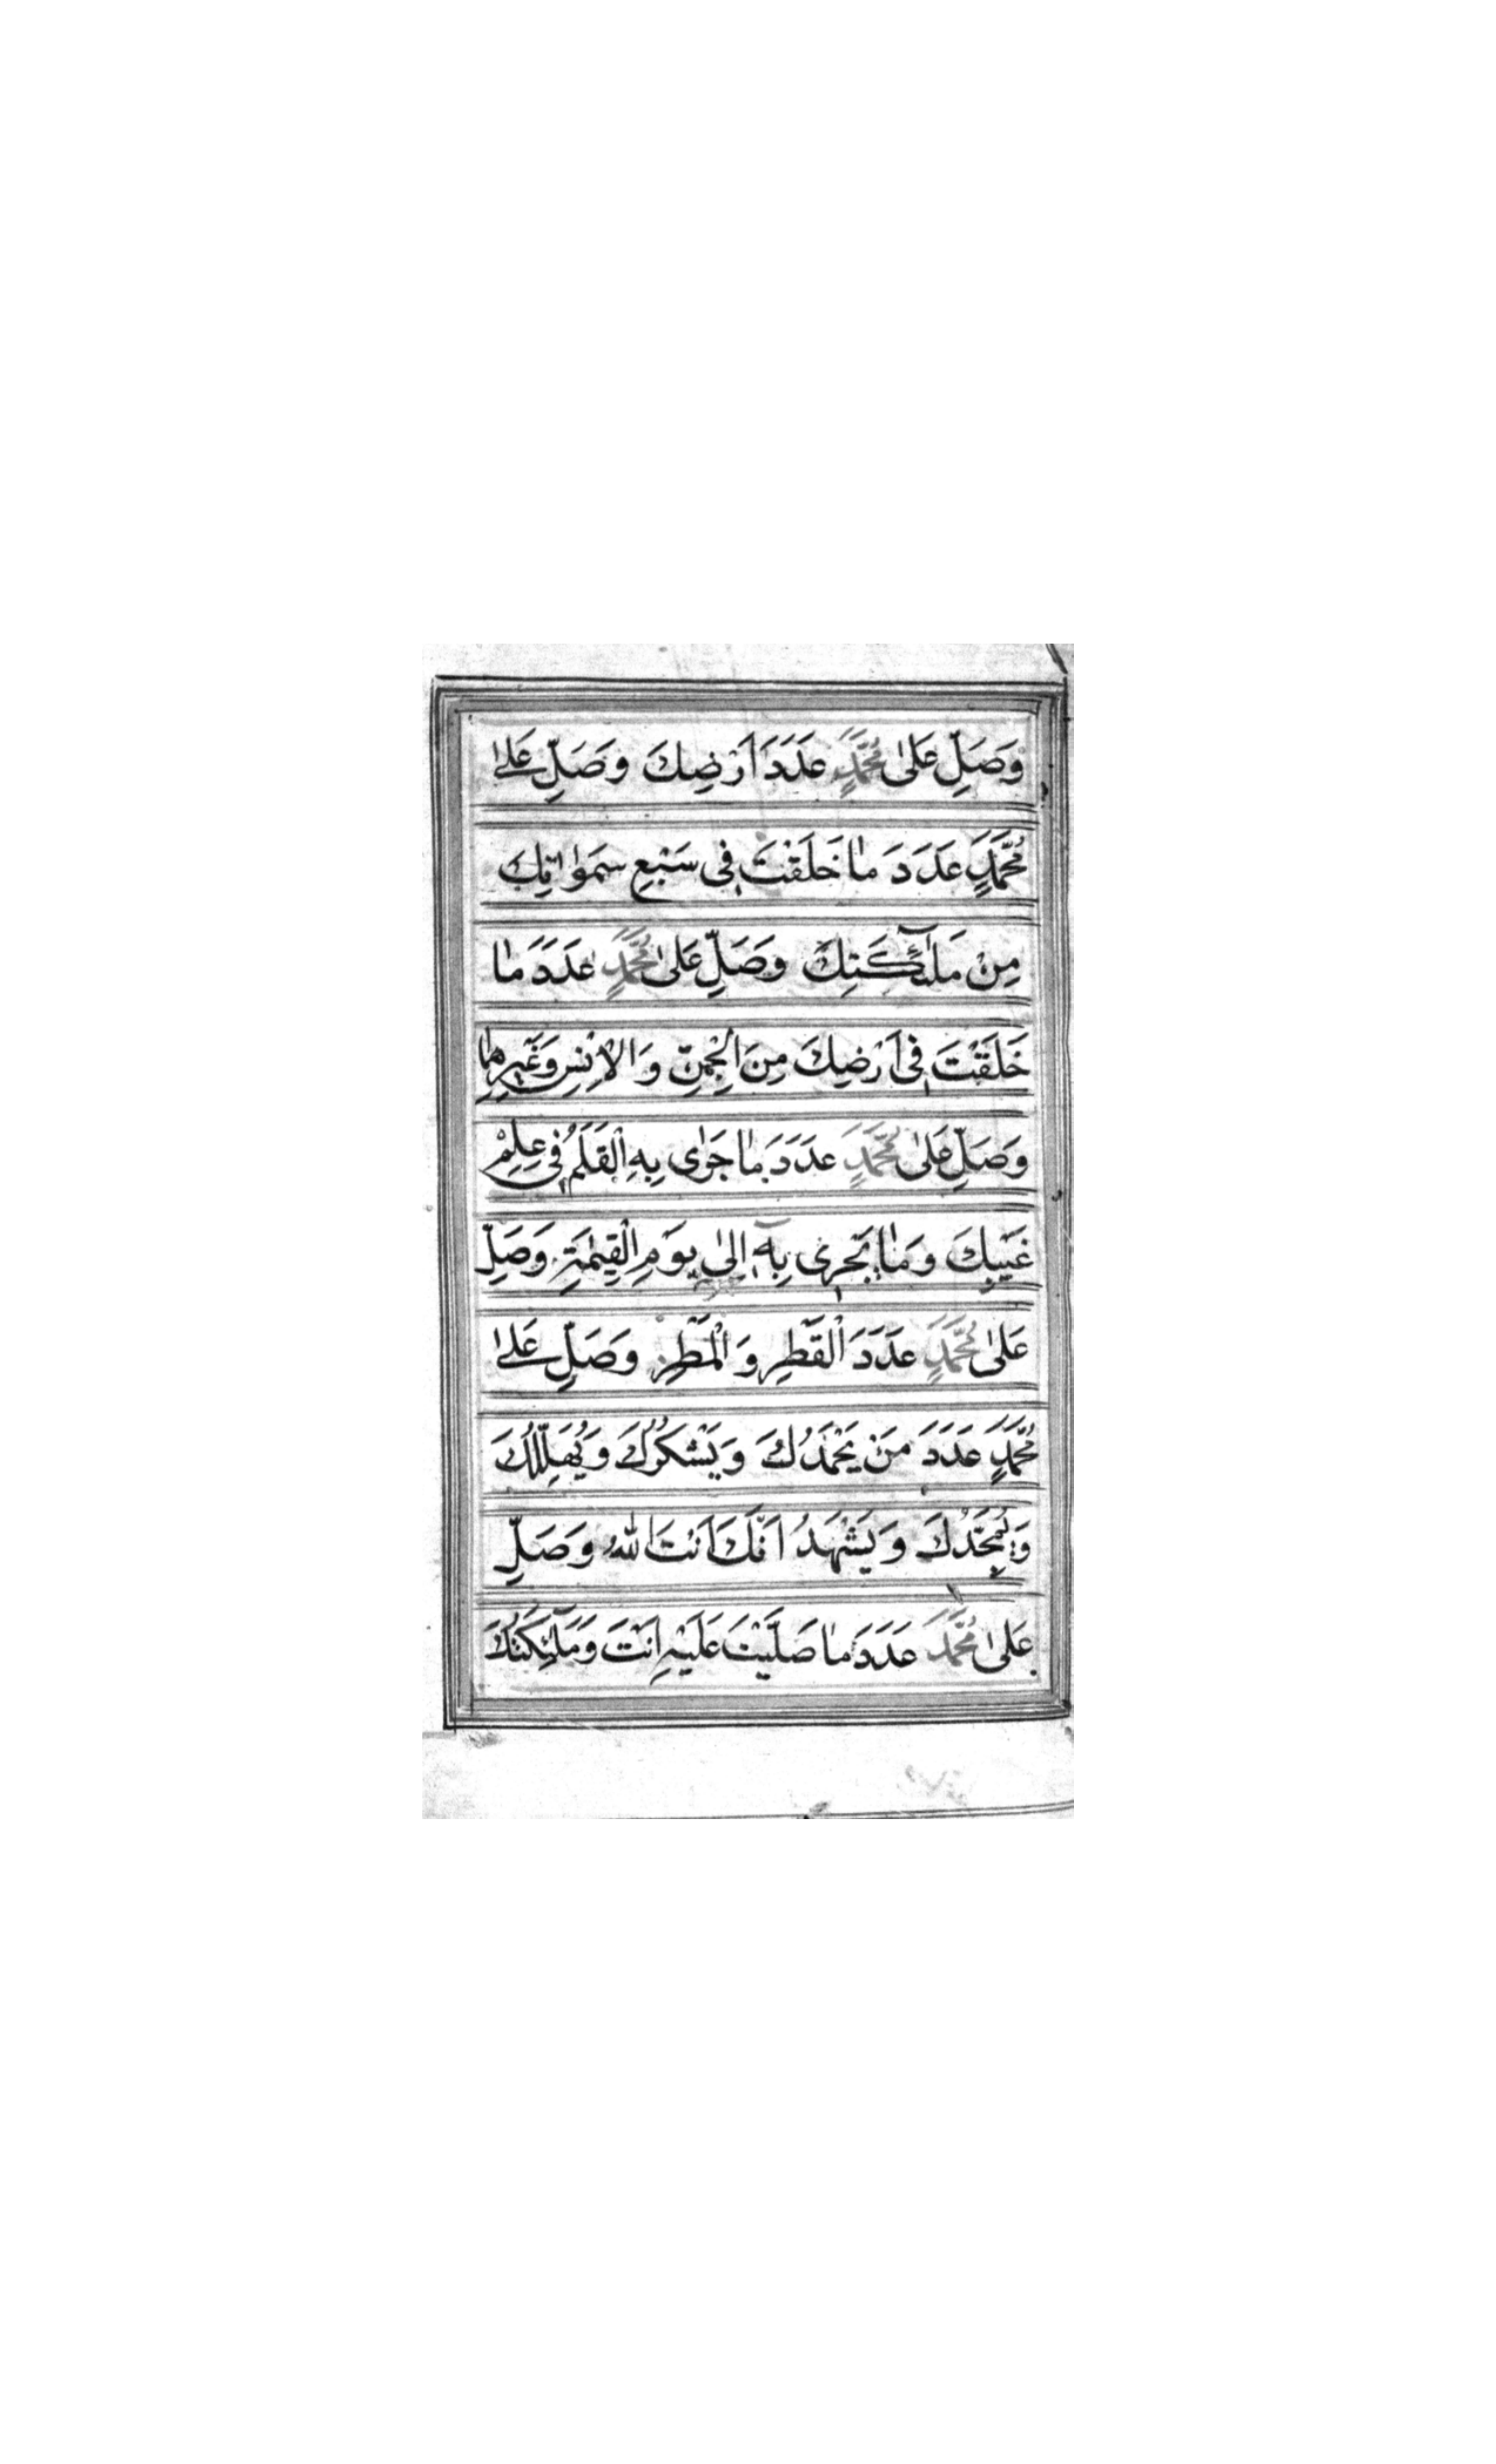 وَصَلِّ عَلٰى مُحَمَّدٍ عَدَدَ اَرْضِكَ وَصَلِّ عَلٰى
مُحَمَّدٍ عَدَدَ مٰا خَلَقْتَ فِى سَبْعِ سَمٰوٰاتِكَ
مِنْ مَلٰٓئِكَتِكَ وَصَلِّ عَلٰى مُحَمَّدٍ عَدَدَ مٰا
خَلَقْتَ فِى اَرْضِكَ مِنَ الْجِنِّ وَالْاِنْسِ وَغَيْرِهِمٰا
وَصَلِّ عَلٰى مُحَمَّدٍ عَدَدَ مٰا جَرٰى بِهِ الْقَلَمُ فِى عِلْمِ
غَيْبِكَ وَمٰا يَجْرِى بِهٓ اِلٰى يَوْمِ الْقِيٰمَةِ وَصَلِّ
عَلٰى مُحَمَّدٍ عَدَدَ الْقَطْرِ وَالْمَطَرِ وَصَلِّ عَلٰى
مُحَمَّدٍ عَدَدَ مَنْ يَحْمَدُكَ وَيَشْكُرُكَ وَيُهَلِّلُكَ
وَيُمَجِّدُكَ وَيَشْهَدُ اَنَّكَ اَنْتَ اللهُ وَصَلِّ
عَلٰى مُحَمَّدٍ عَدَدَ مٰا صَلَّيْتَ عَلَيْهِ اَنْتَ وَمَلٰٓئِكَتُكَ